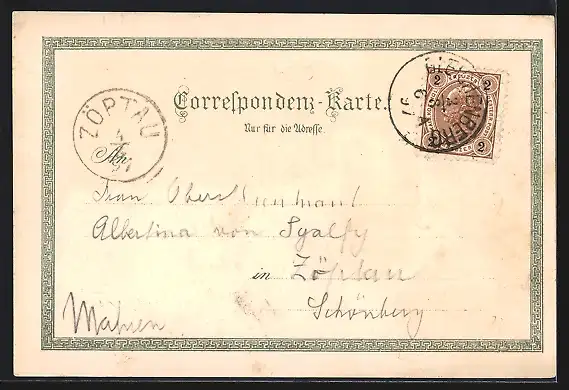 Correspondenz-Karte.
Nur für die Adresse.
ZÖPTAU
97
2 2
2 2
An
Frau Oberstlieutnant
Albertina von Syalfy
in Zöptau
Schönberg
Mähren